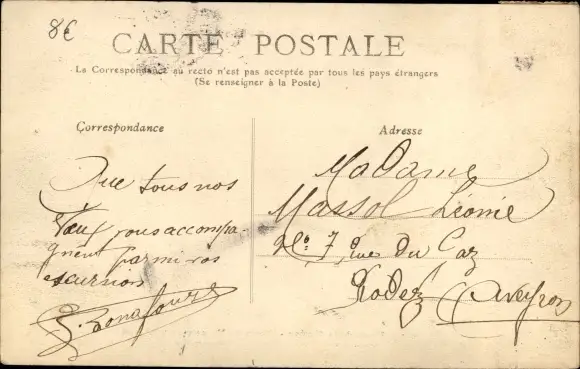 8€
CARTE POSTALE
La Correspondance au recto n'est pas acceptée par tous les pays étrangers
(Se renseigner à la Poste)
Correspondance
Adresse
Que tous nos
Vœux vous accompa-
gnent parmi vos
excursions
Madame
Massol Léonie
No 7, rue du Gaz
Rodez (Aveyron)